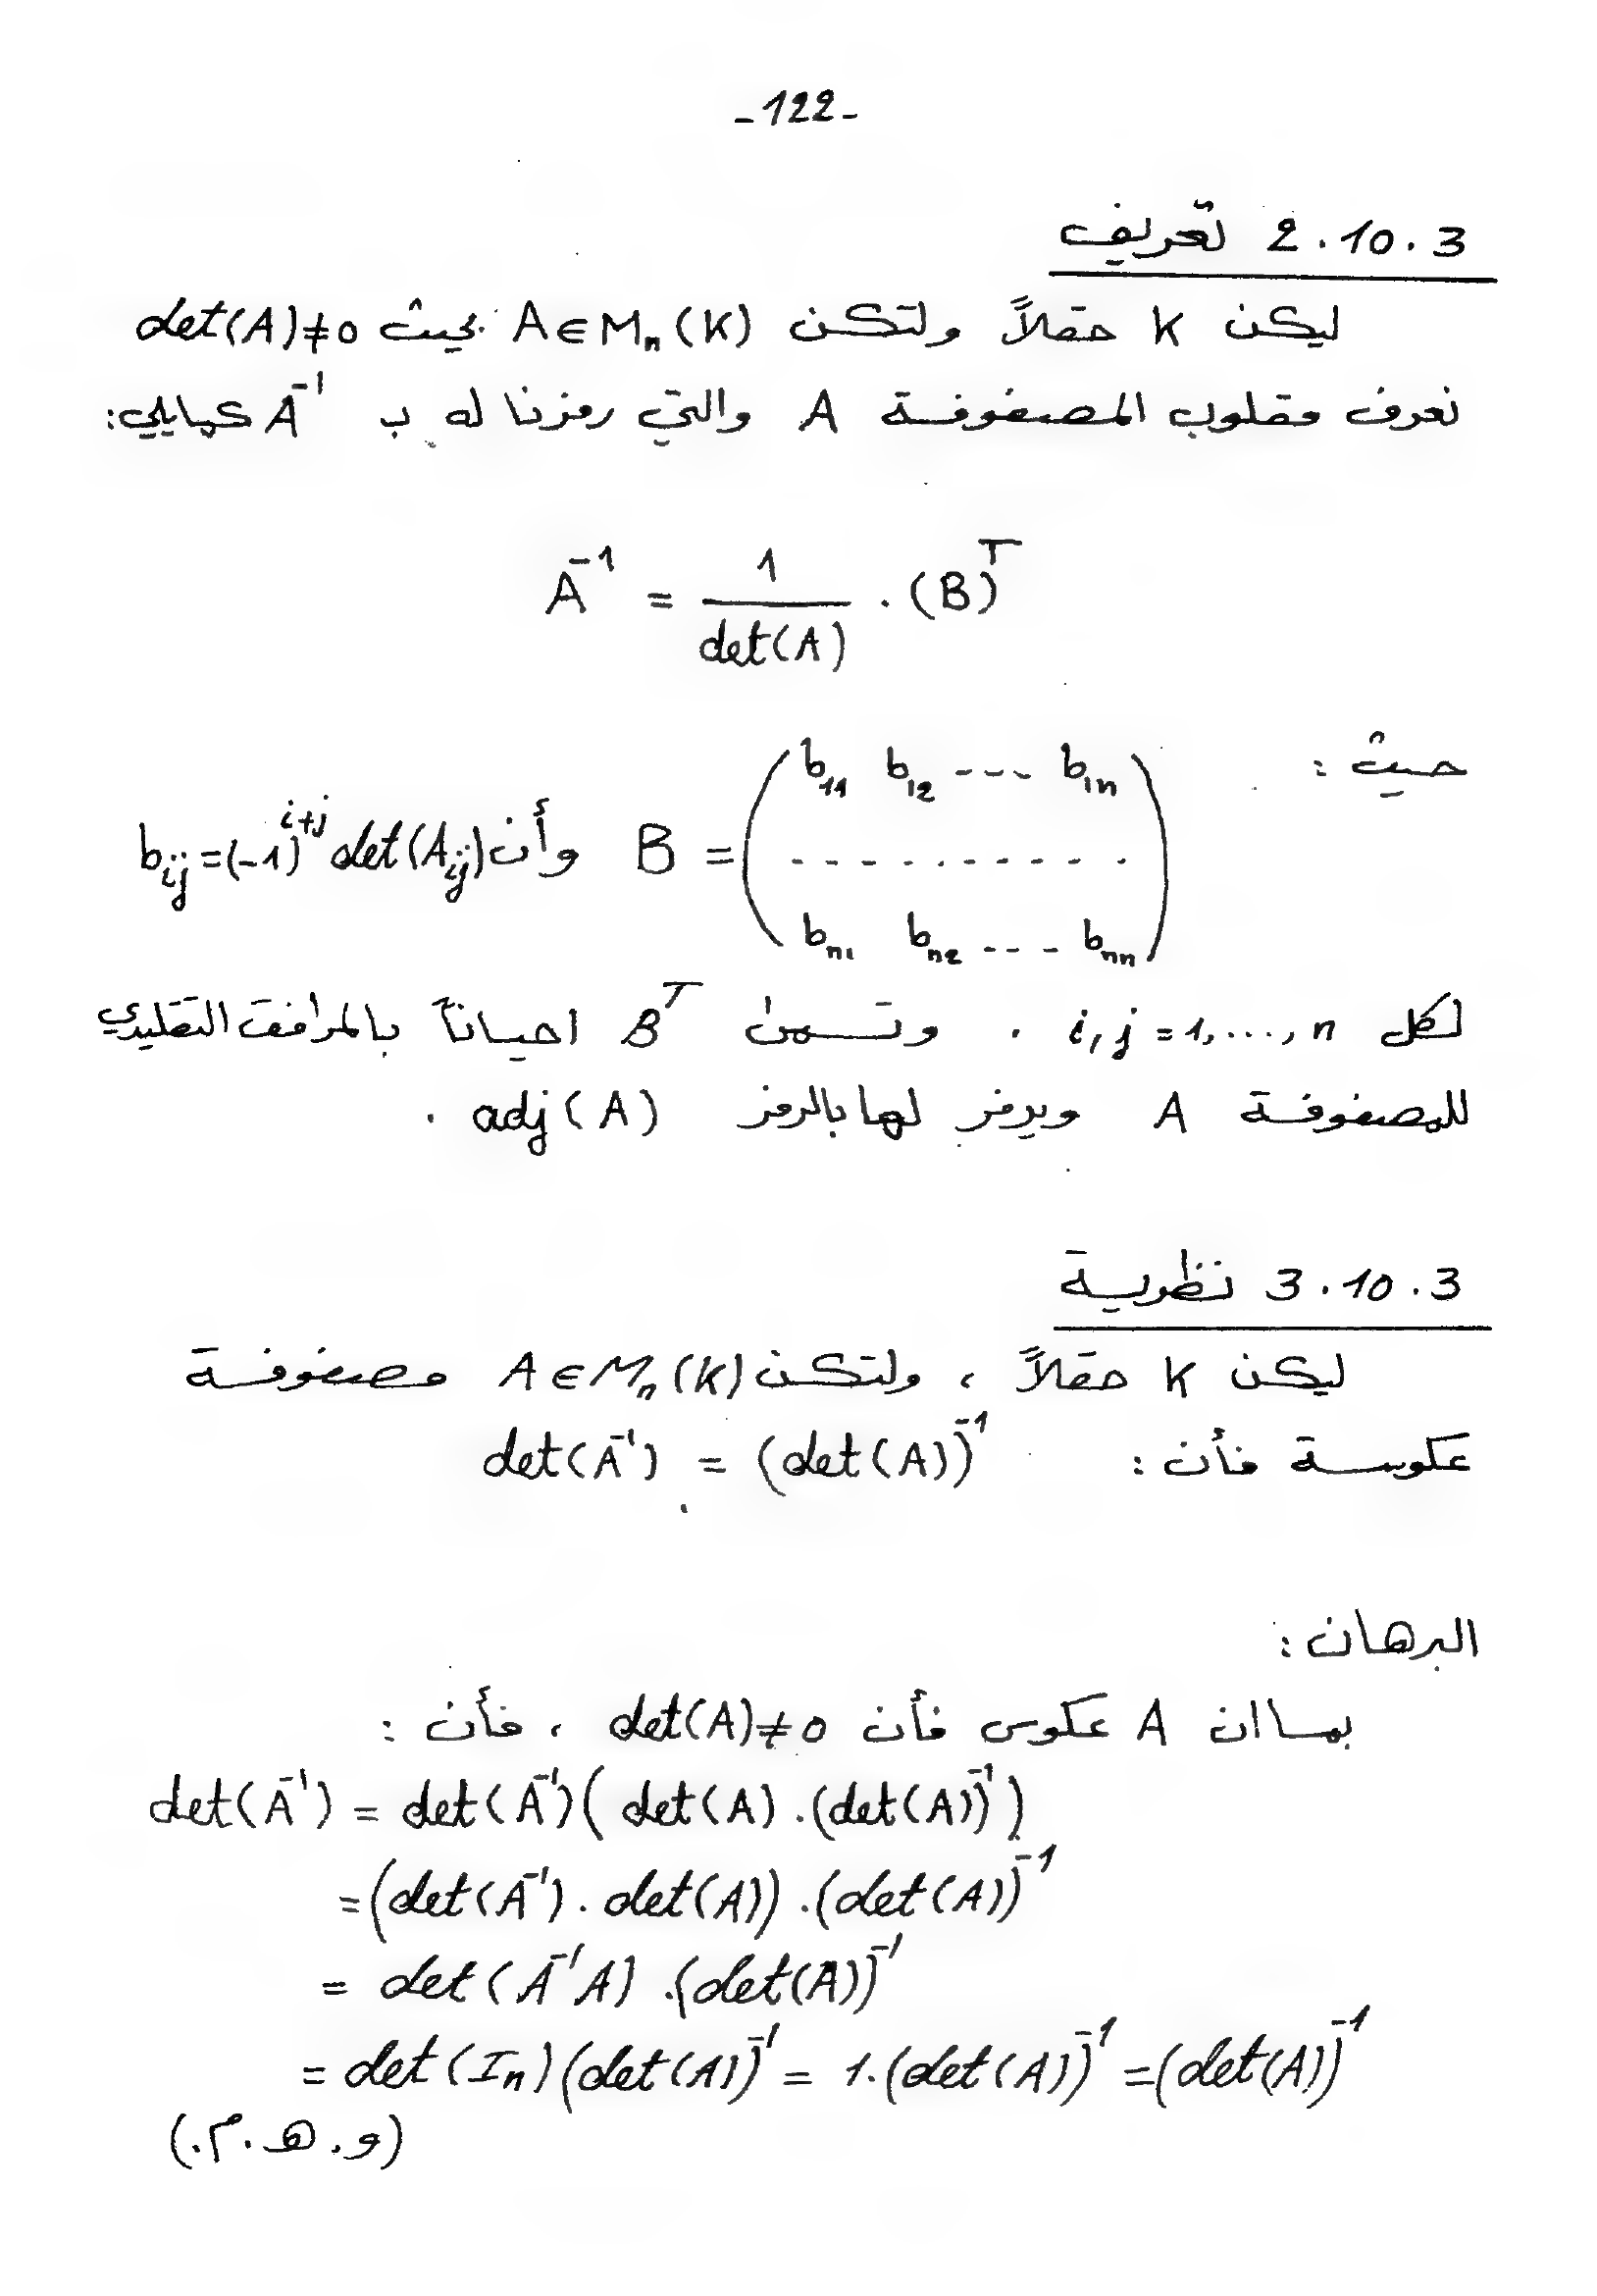 -122-
2.10.3 تعريف
ليكن K حقلاً ولتكن A∈Mₙ(K) بحيث det(A)≠0
نعرف مقلوب المصفوفة A والتي رمزنا له ب A⁻¹ كمايلي:
A⁻¹ = 1/det(A) · (B)ᵀ
حيث :
B = (b₁₁ b₁₂ --- b₁ₙ
- - - - - - - - - -
bₙ₁ bₙ₂ --- bₙₙ) وأن bᵢⱼ=(-1)ⁱ⁺ʲ det(Aᵢⱼ)
لكل i,j=1,...,n . وتسمى Bᵀ احياناً بالمرافق التقليدي
للمصفوفة A ويرمز لها بالرمز adj(A) .
3.10.3 نظرية
ليكن K حقلاً ، ولتكن A∈Mₙ(K) مصفوفة
عكوسة فأن : det(A⁻¹) = (det(A))⁻¹
البرهان :
بما ان A عكوس فأن det(A)≠0 ، فأن :
det(A⁻¹) = det(A⁻¹)(det(A).(det(A))⁻¹)
=(det(A⁻¹).det(A)).(det(A))⁻¹
= det(A⁻¹A).(det(A))⁻¹
= det(Iₙ)(det(A))⁻¹ = 1.(det(A))⁻¹ =(det(A))⁻¹
(و.هـ.م.)